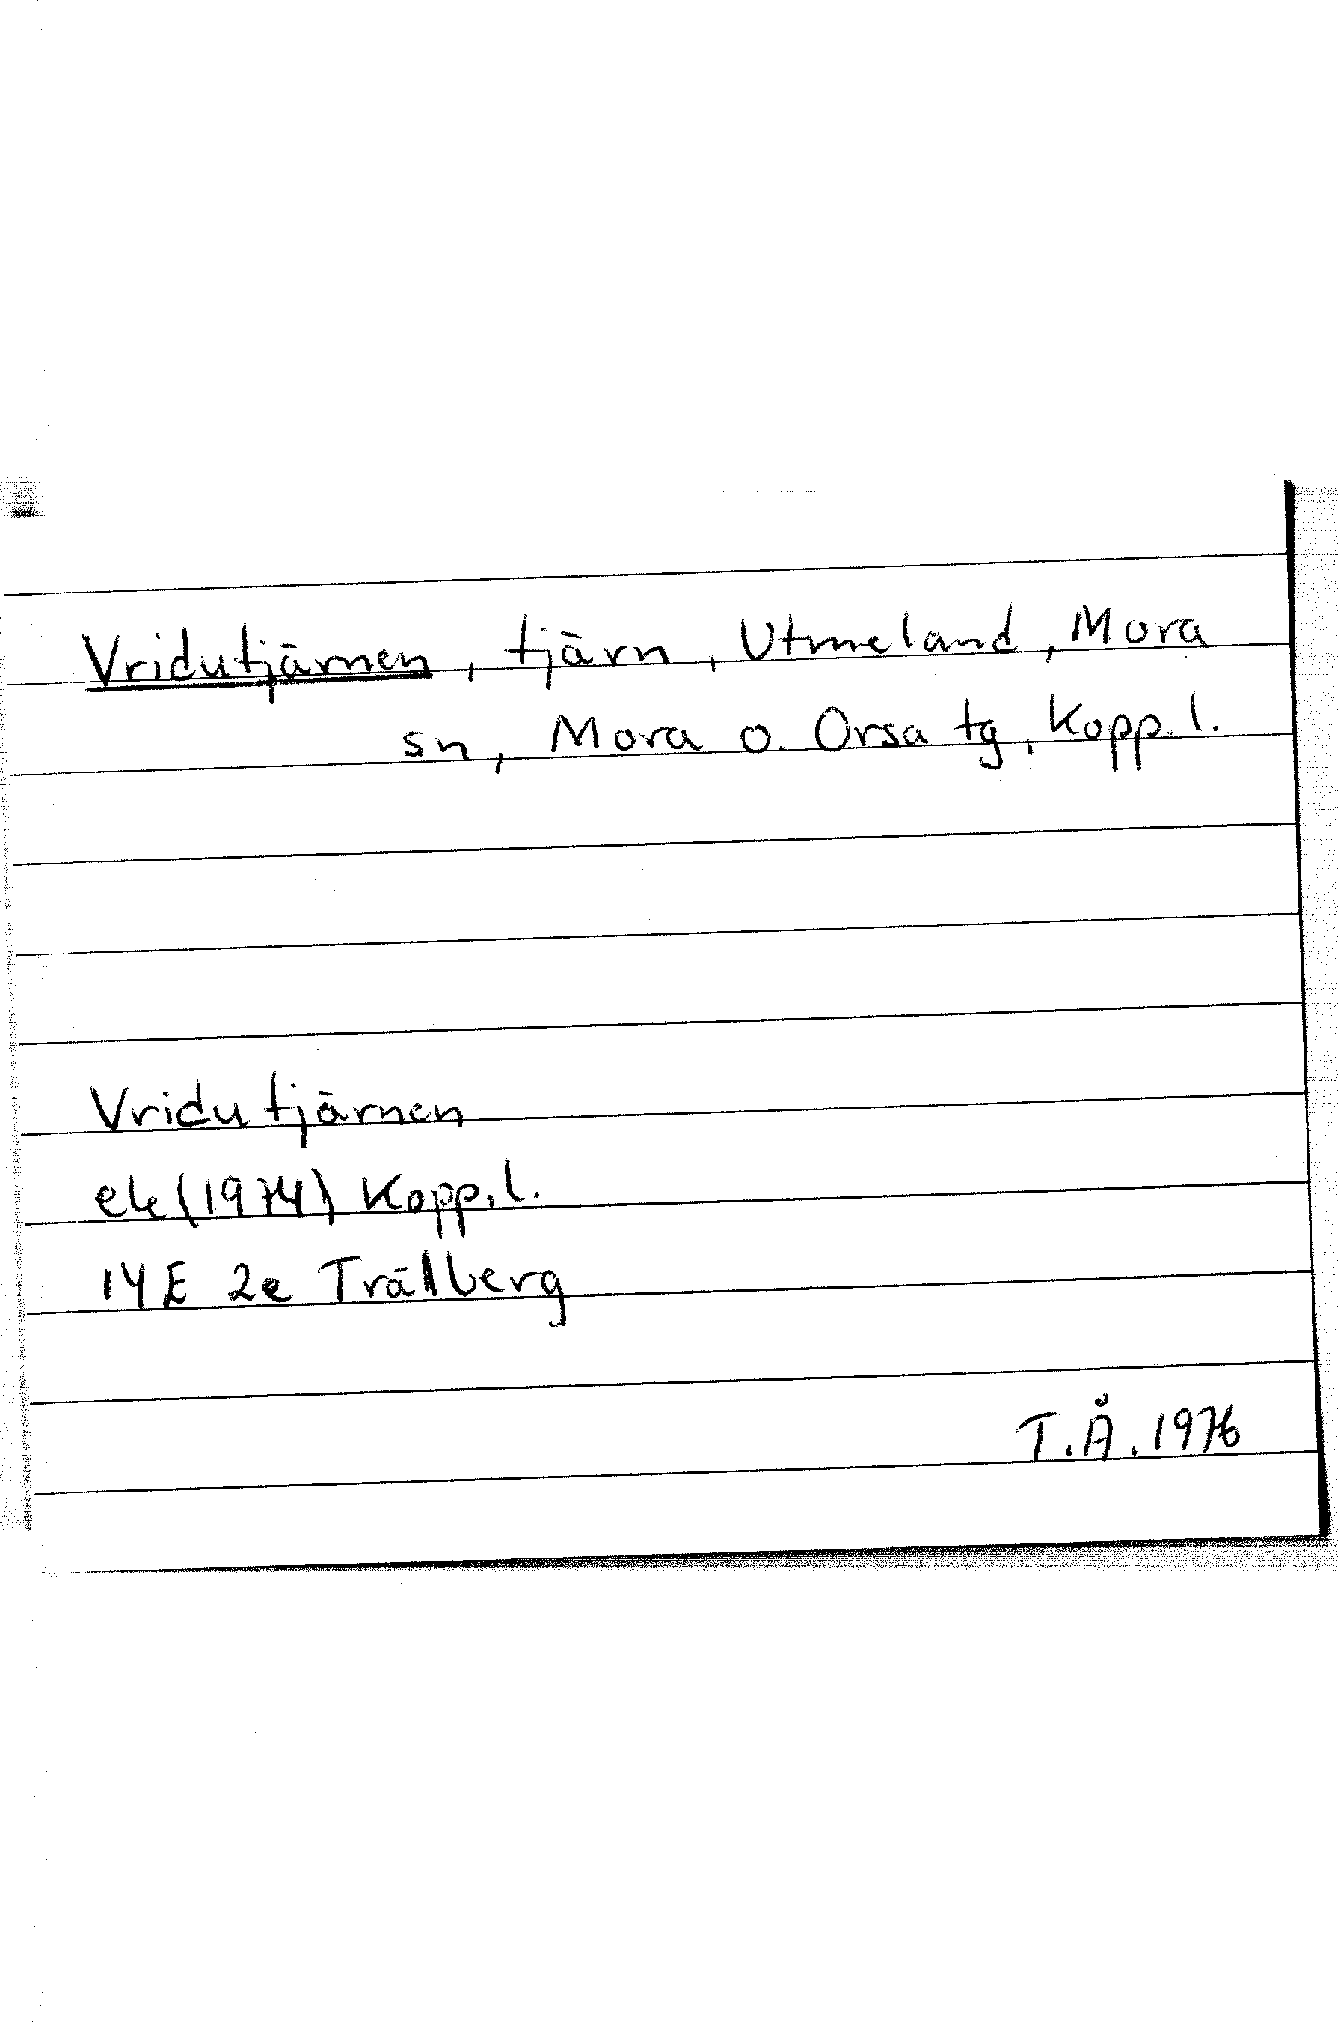 Vridutjärnen, tjärn, Utmeland, Mora
sn, Mora o. Orsa tg, Kopp. l.
Vridutjärnen
ek (1974) Kopp. l.
14E 2e Trälberg
T.Å. 1976